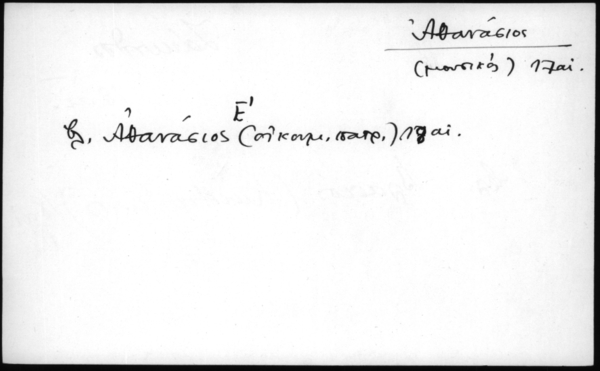 Ἀθανάσιος
(μουσικός) 17 αἰ.
Ε'
βλ. Ἀθανάσιος (οἰκουμ. πατρ.) 18 αἰ.